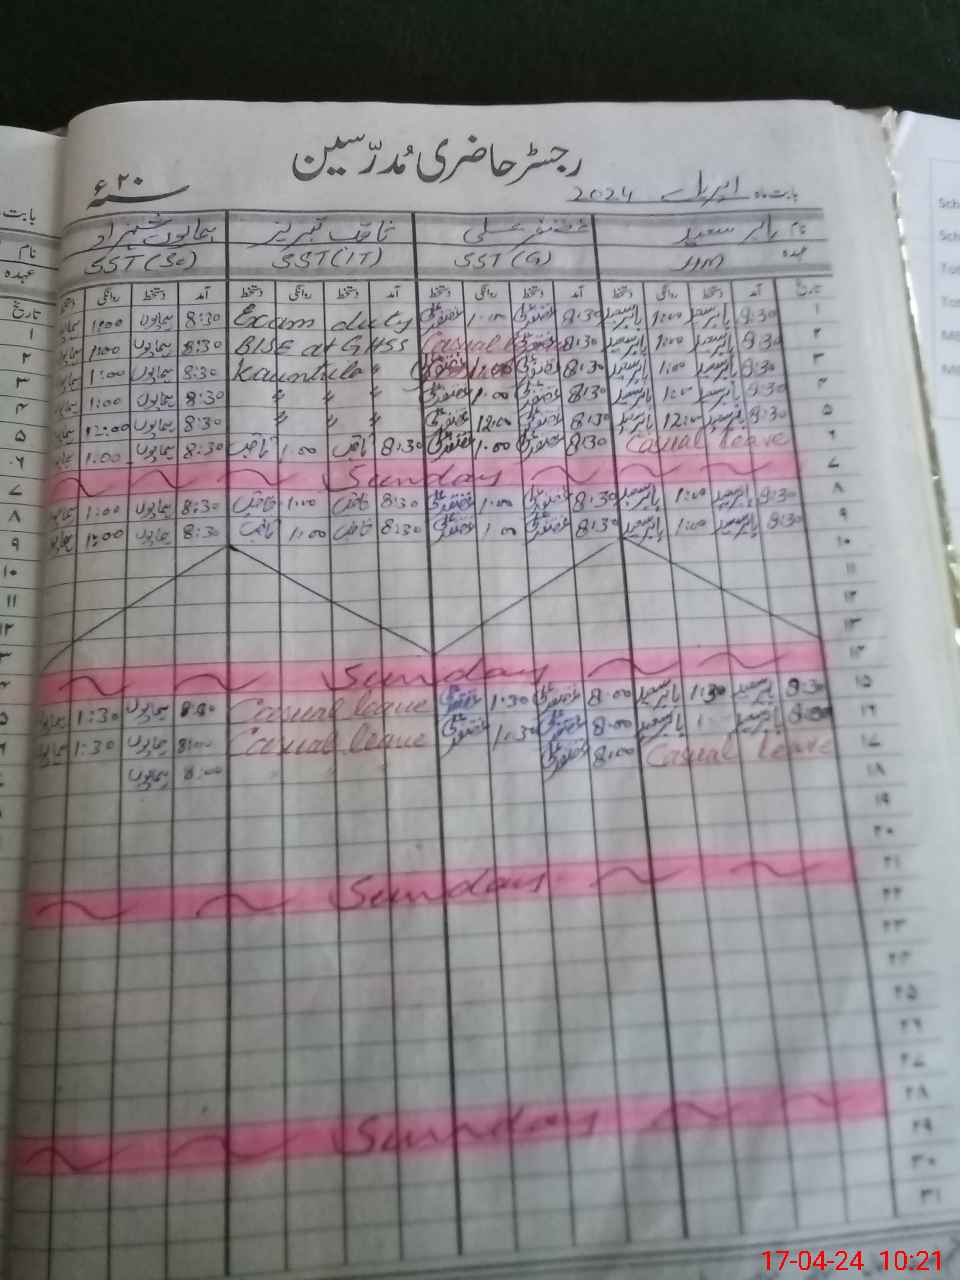 رجسٹر حاضری مُدرّسین
بابت ماہ اپریل 2024 سنہ ۲۰ء
نام بابر سعید غضنفر علی ثاقب تبریز ہمایوں شہزاد
عہدہ HM SST (G) SST (IT) SST (Sc)
تاریخ آمد دستخط روانگی دستخط آمد دستخط روانگی دستخط آمد دستخط روانگی دستخط آمد دستخط روانگی دستخط
۱ 8:30 بابر سعید 1:00 بابر سعید 8:30 غضنفر علی 1:00 غضنفر علی Exam duty 8:30 ہمایوں 1:00
۲ 8:30 بابر سعید 1:00 بابر سعید 8:30 Casual BISE at GHSS 8:30 ہمایوں 1:00
۳ 8:30 بابر سعید 1:00 بابر سعید 8:30 غضنفر علی 1:00 غضنفر علی 8:30 ہمایوں 1:00
۴ 8:30 بابر سعید 1:00 بابر سعید 8:30 غضنفر علی 1:00 غضنفر علی " " " 8:30 ہمایوں 1:00
۵ 8:30 بابر سعید 12:00 بابر سعید 8:30 غضنفر علی 12:00 غضنفر علی " " " 8:30 ہمایوں 12:00
۶ Casual leave 8:30 غضنفر علی 1:00 غضنفر علی 8:30 ثاقب 1:00 ثاقب 8:30 ہمایوں 1:00
۷ Sunday
۸ 8:30 بابر سعید 1:00 بابر سعید 8:30 غضنفر علی 1:00 غضنفر علی 8:30 ثاقب 1:00 ثاقب 8:30 ہمایوں 1:00
۹ 8:30 بابر سعید 1:00 بابر سعید 8:30 غضنفر علی 1:00 غضنفر علی 8:30 ثاقب 1:00 ثاقب 8:30 ہمایوں 1:00
۱۰
۱۱
۱۲
۱۳
۱۴ Sunday
۱۵ 8:30 بابر سعید 1:30 بابر سعید 8:00 غضنفر علی 1:30 غضنفر علی Casual leave ہمایوں 1:30
۱۶ بابر سعید بابر سعید 8:00 غضنفر علی 1:30 غضنفر علی Casual leave 8:00 ہمایوں 1:30
۱۷ Casual leave 8:00 غضنفر علی " " " 8:00 ہمایوں
۱۸
۱۹
۲۰
۲۱ Sunday
۲۲
۲۳
۲۴
۲۵
۲۶
۲۷
۲۸ Sunday
۲۹
۳۰
۳۱
17-04-24 10:21